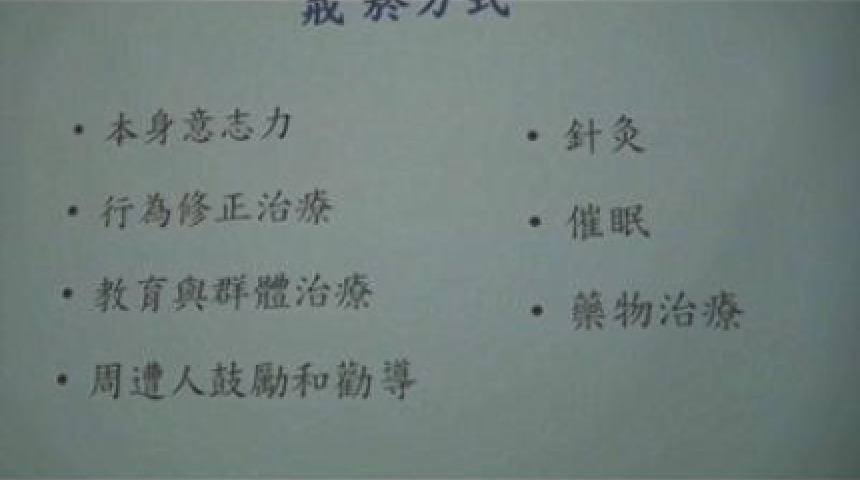 戒菸方式
• 本身意志力
• 行為修正治療
• 教育與群體治療
• 周遭人鼓勵和勸導
• 針灸
• 催眠
• 藥物治療